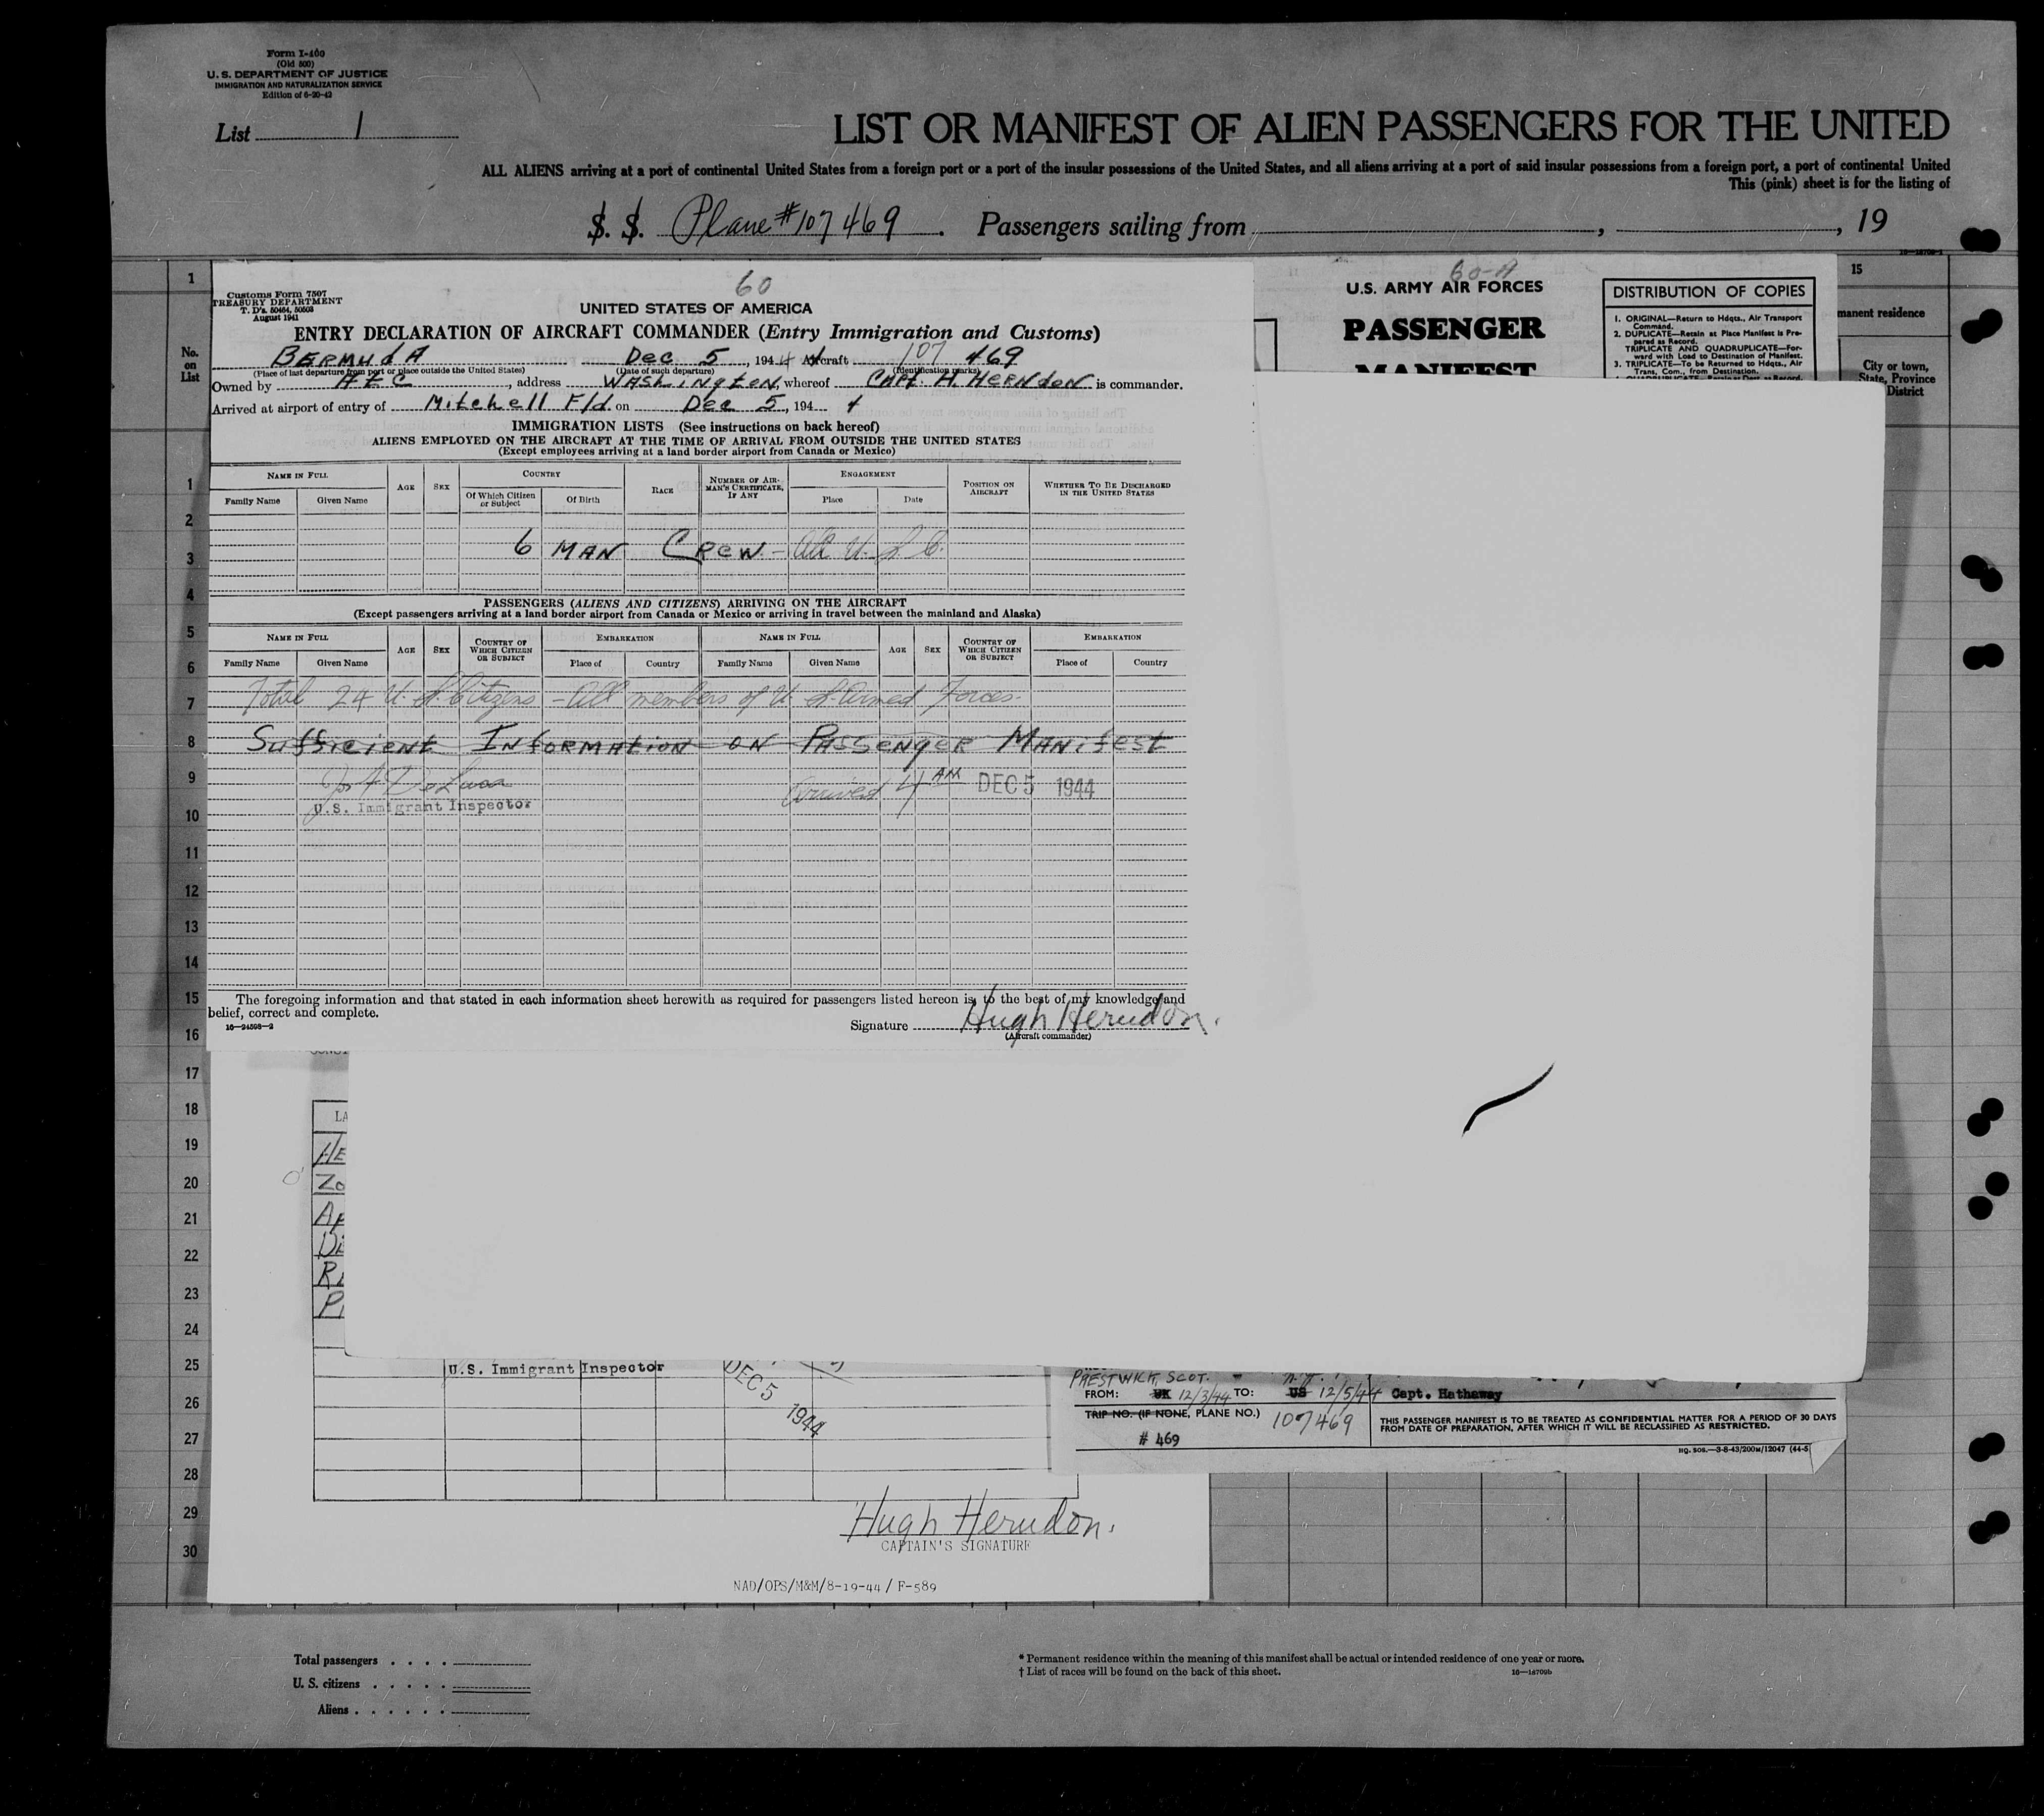 Form I-460
(Old 500)
U. S. DEPARTMENT OF JUSTICE
IMMIGRATION AND NATURALIZATION SERVICE
Edition of 6-20-42
List 1
LIST OR MANIFEST OF ALIEN PASSENGERS FOR THE UNITED
ALL ALIENS arriving at a port of continental United States from a foreign port or a port of the insular possessions of the United States, and all aliens arriving at a port of said insular possessions from a foreign port, a port of continental United
This (pink) sheet is for the listing of
S. S. Plane #107469. Passengers sailing from , , 19
No. on List
15
manent residence
City or town, State, Province District
60
Customs Form 7507
TREASURY DEPARTMENT
T. D's. 50464, 50503
August 1941
UNITED STATES OF AMERICA
ENTRY DECLARATION OF AIRCRAFT COMMANDER (Entry Immigration and Customs)
BERMUDA Dec 5, 1944 Aircraft 107 469
(Place of last departure from port or place outside the United States) (Date of such departure) (Identification marks)
Owned by , address WASHINGTON, whereof CAPT. H. HERNDON is commander.
Arrived at airport of entry of Mitchell Fld. on Dec 5, 194 4
IMMIGRATION LISTS (See instructions on back hereof)
ALIENS EMPLOYED ON THE AIRCRAFT AT THE TIME OF ARRIVAL FROM OUTSIDE THE UNITED STATES
(Except employees arriving at a land border airport from Canada or Mexico)
NAME IN FULL AGE SEX COUNTRY RACE NUMBER OF AIRMAN'S CERTIFICATE, IF ANY ENGAGEMENT POSITION ON AIRCRAFT WHETHER TO BE DISCHARGED IN THE UNITED STATES
Family Name Given Name Of Which Citizen or Subject Of Birth Place Date
6 MAN CREW - All U. S. C.
PASSENGERS (ALIENS AND CITIZENS) ARRIVING ON THE AIRCRAFT
(Except passengers arriving at a land border airport from Canada or Mexico or arriving in travel between the mainland and Alaska)
NAME IN FULL AGE SEX COUNTRY OF WHICH CITIZEN OR SUBJECT EMBARKATION NAME IN FULL AGE SEX COUNTRY OF WHICH CITIZEN OR SUBJECT EMBARKATION
Family Name Given Name Place of Country Family Name Given Name Place of Country
Total 24 U. S. Citizens - All members of U. S. Armed Forces.
Sufficient Information on Passenger Manifest
Jos A DeLuca Arrived 4 AM DEC 5 1944
U.S. Immigrant Inspector
The foregoing information and that stated in each information sheet herewith as required for passengers listed hereon is, to the best of my knowledge and
belief, correct and complete.
16—24598-2
Signature Hugh Herndon.
(Aircraft commander)
60-A
U.S. ARMY AIR FORCES
PASSENGER
MANIFEST
DISTRIBUTION OF COPIES
1. ORIGINAL—Return to Hdqts., Air Transport
Command.
2. DUPLICATE—Retain at Place Manifest is Pre-
pared as Record.
TRIPLICATE AND QUADRUPLICATE—For-
ward with Load to Destination of Manifest.
3. TRIPLICATE—To be Returned to Hdqts., Air
Trans. Com., from Destination.
1
1
2
3
4
5
6
7
8
9
10
11
12
13
14
15
16
17
18
19
20
21
22
23
24
25
26
27
28
29
30
LA
HE
Zo
Ap
Di
U.S. Immigrant Inspector
DEC 5 1944
PRESTWICK, SCOT.
FROM: UK 12/3/44 TO: US 12/5/44 Capt. Hathaway
TRIP NO. (IF NONE, PLANE NO.) 107469
# 469
THIS PASSENGER MANIFEST IS TO BE TREATED AS CONFIDENTIAL MATTER FOR A PERIOD OF 30 DAYS
FROM DATE OF PREPARATION, AFTER WHICH IT WILL BE RECLASSIFIED AS RESTRICTED.
HQ. SOS.—3-8-43/200M/12047 (44-5
Hugh Herndon.
CAPTAIN'S SIGNATURE
NAD/OPS/M&M/8-19-44 / F-589
Total passengers . . . .
U. S. citizens . . . . .
Aliens . . . . . .
* Permanent residence within the meaning of this manifest shall be actual or intended residence of one year or more.
† List of races will be found on the back of this sheet.
16—18709b